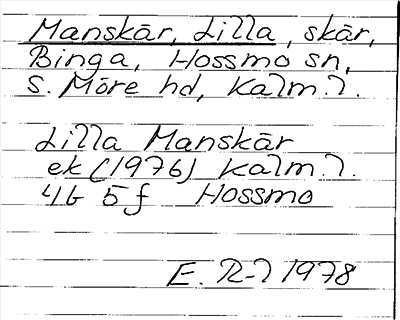 Manskär, Lilla, skär,
Binga, Hossmo sn,
S. Möre hd, Kalm.l.
Lilla Manskär
ek (1976) Kalm.l.
4G 5f Hossmo
E. R-l 1978